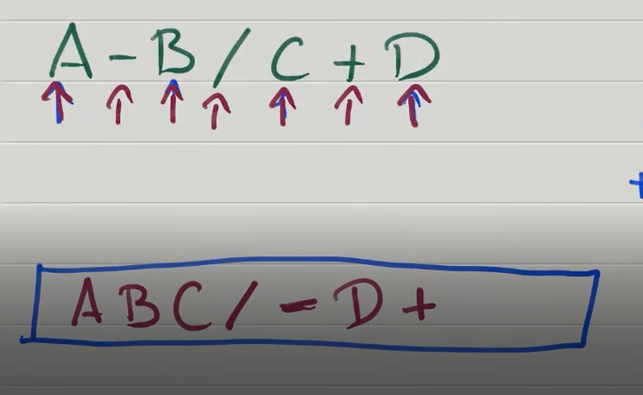 A - B / C + D
A B C / - D +